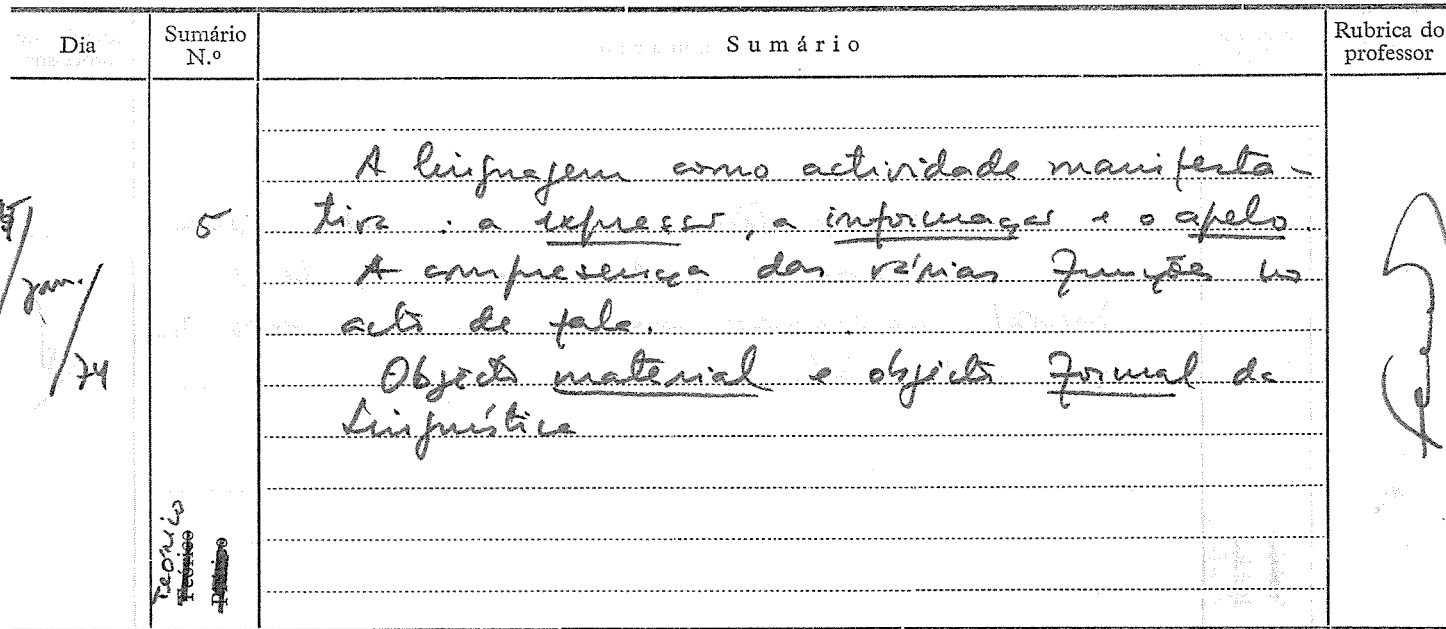 Dia
Sumário N.º
Sumário
Rubrica do professor
A linguagem como actividade manifesta-
tiva : a expressão, a informação e o apelo.
A compresença das várias funções no
acto de fala.
Objecto material e objecto formal da
Linguística
5
/jan./74
Teórico
Teórico